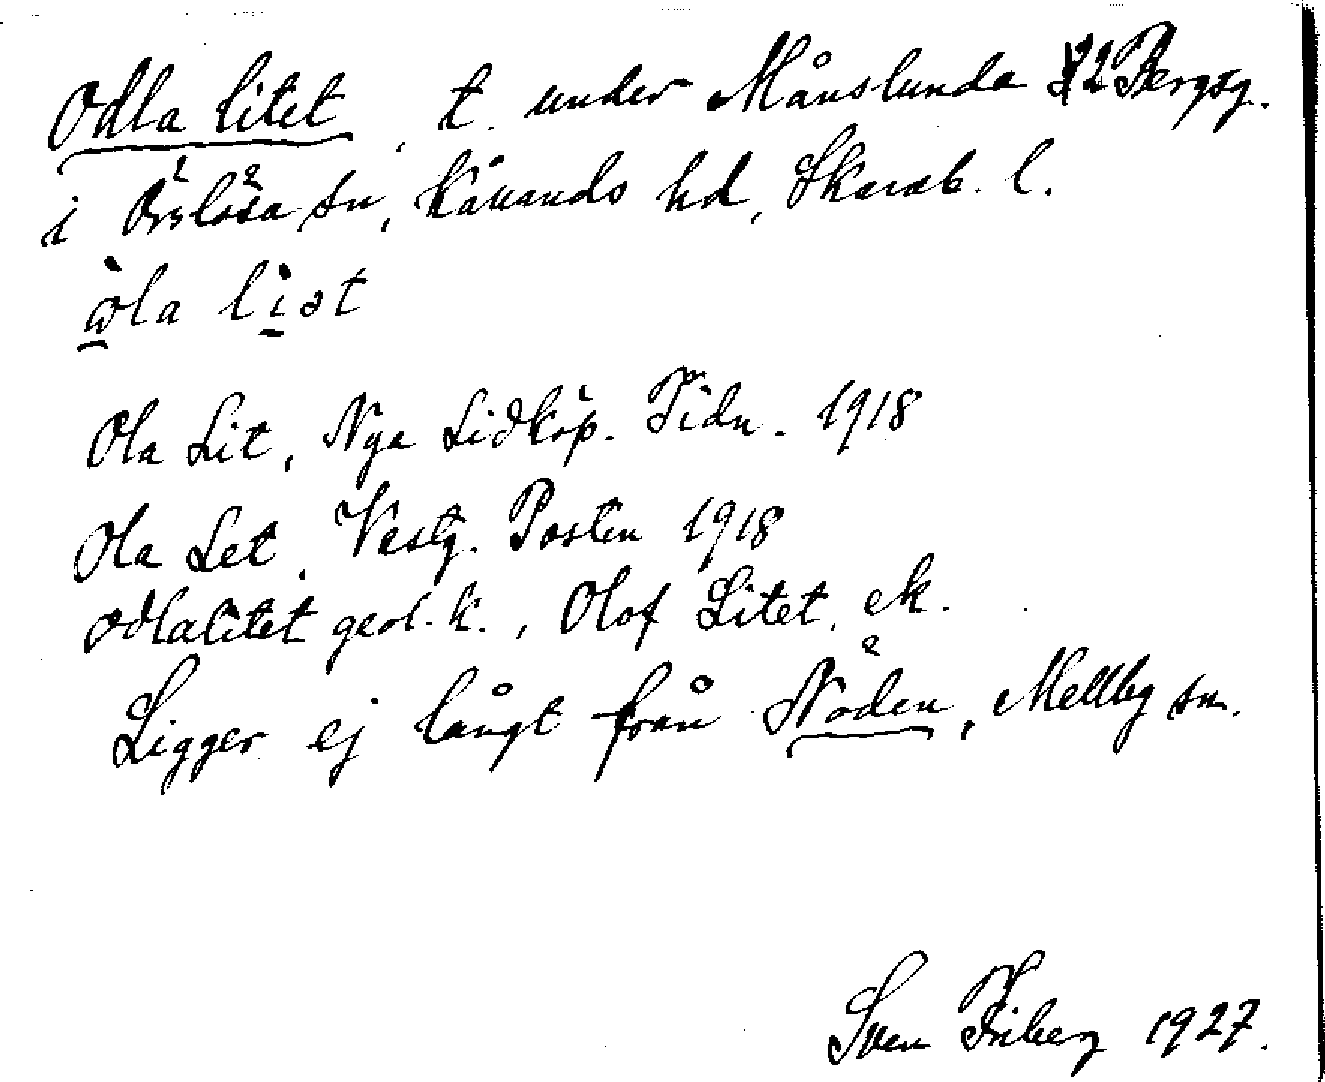 Odla litet, t. under Månslunda 2 Bergsg.
i Örslösa sn, Kållands hd, Skarab. l.
ola liət
Ola Lit, Nya Lidköp. Tidn. 1918
Ola Let, Vestg. Posten 1918
Odlalitet geol. k., Olof Litet, ek.
Ligger ej långt från Nöden, Mellby sn.
Sven Friberg 1927.